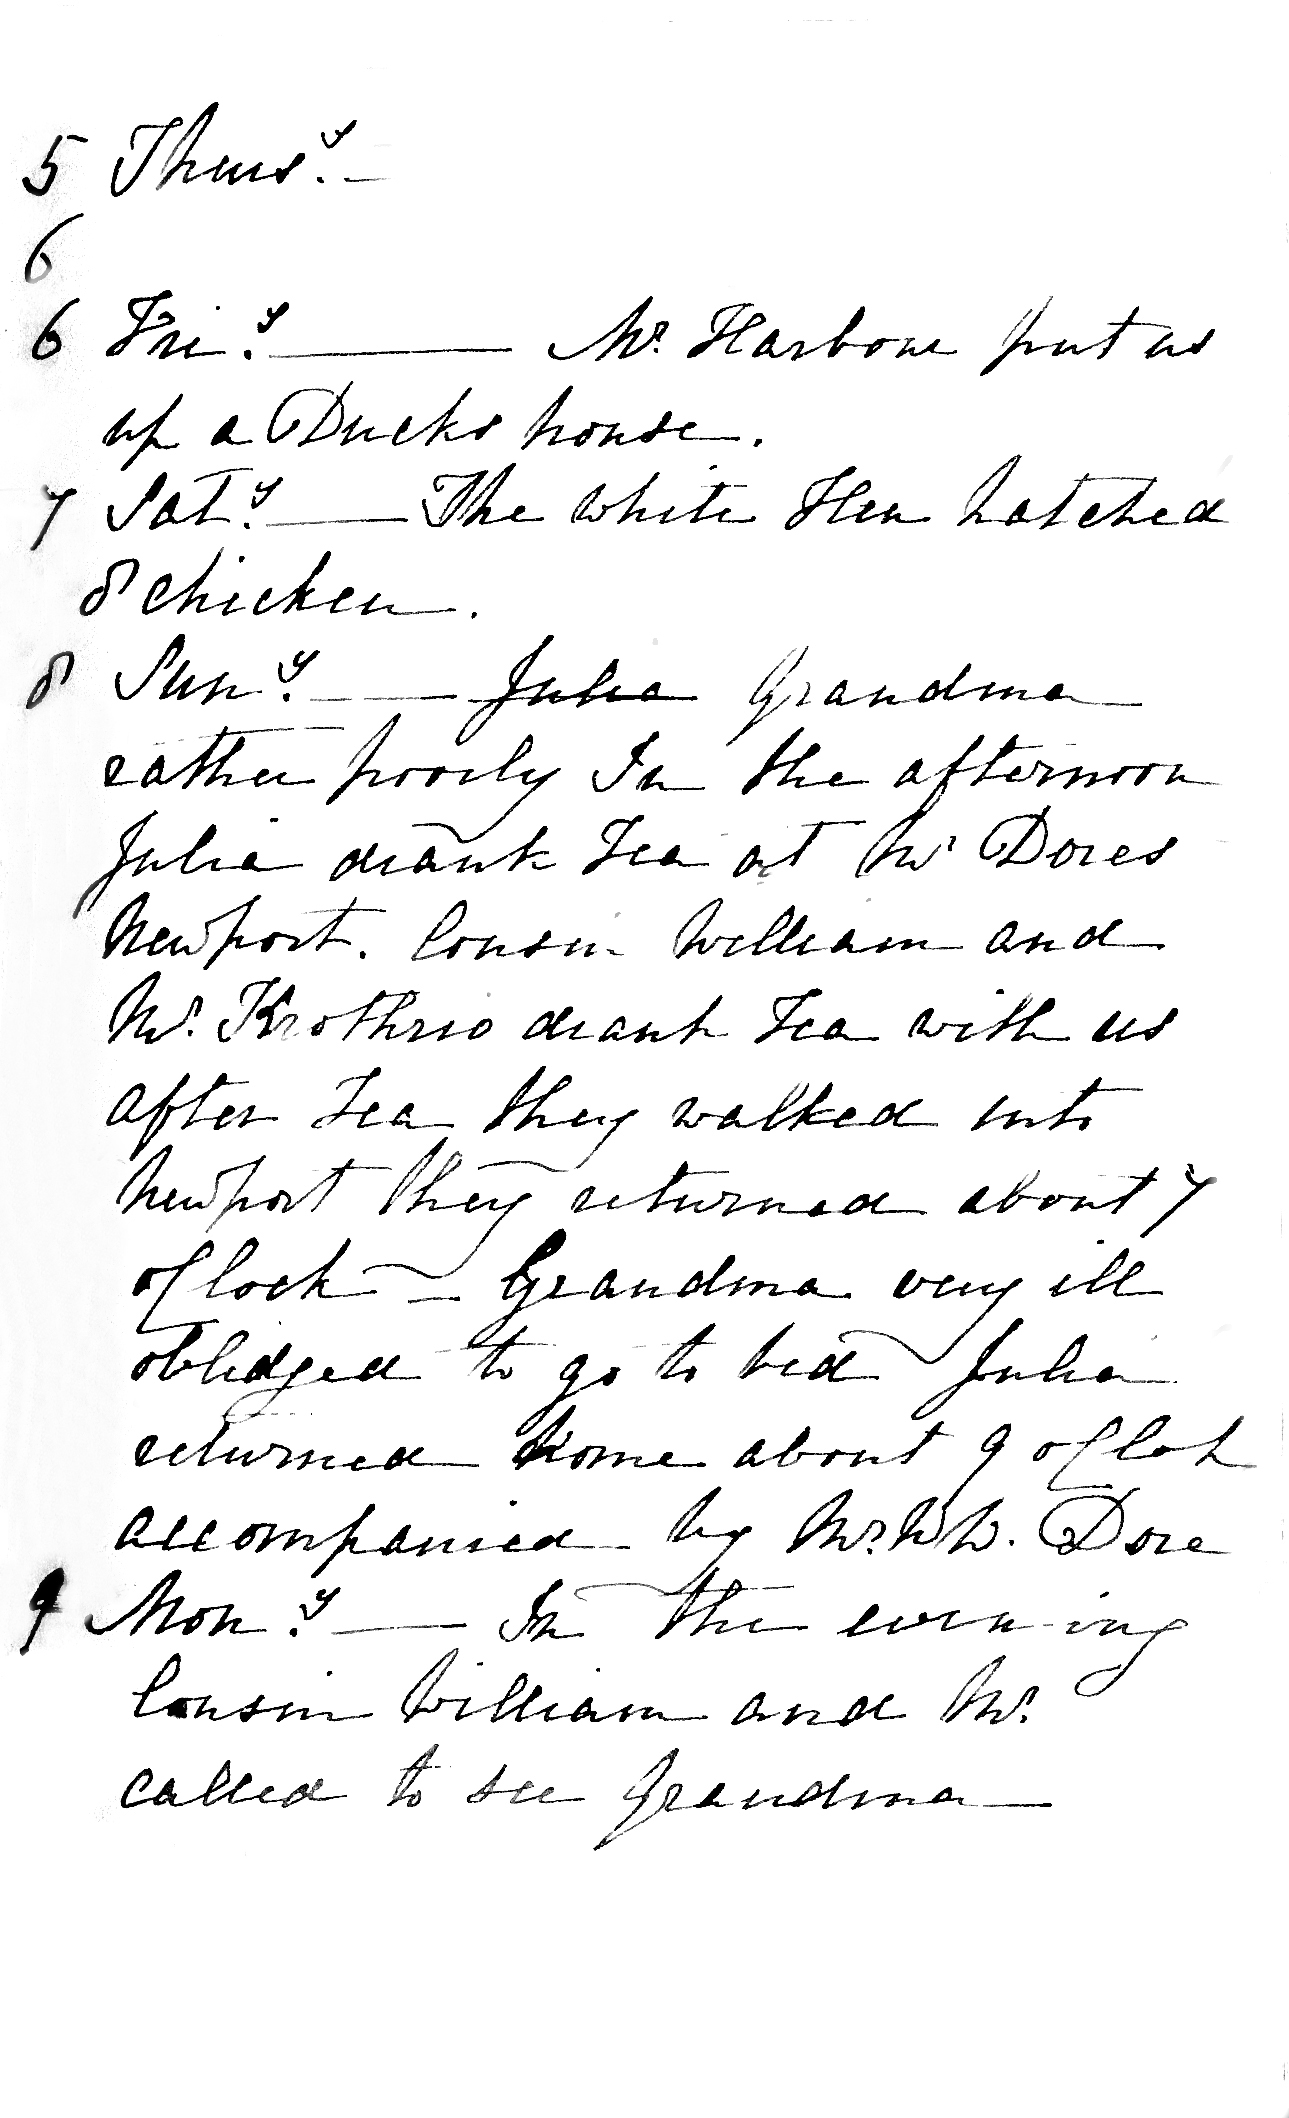 5 Thurs.y —
6
6 Fri.y — Mr. Harbour put us
up a Ducks house.
7 Sat.y — The white Hen hatched
8 chicken.
8 Sun.y — Julia Grandma
rather poorly In the afternoon
Julia drank Tea at Mr Dores
Newport. Cousin William and
Mr. drank Tea with us
after Tea they walked into
Newport they returned about 7
oClock — Grandma very ill
oblidged to go to bed Julia
returned home about 9 oClok
accompanied by Mr. W W. Dore
9 Mon.y — In the evening
Cousin William and Mr.
called to see Grandma